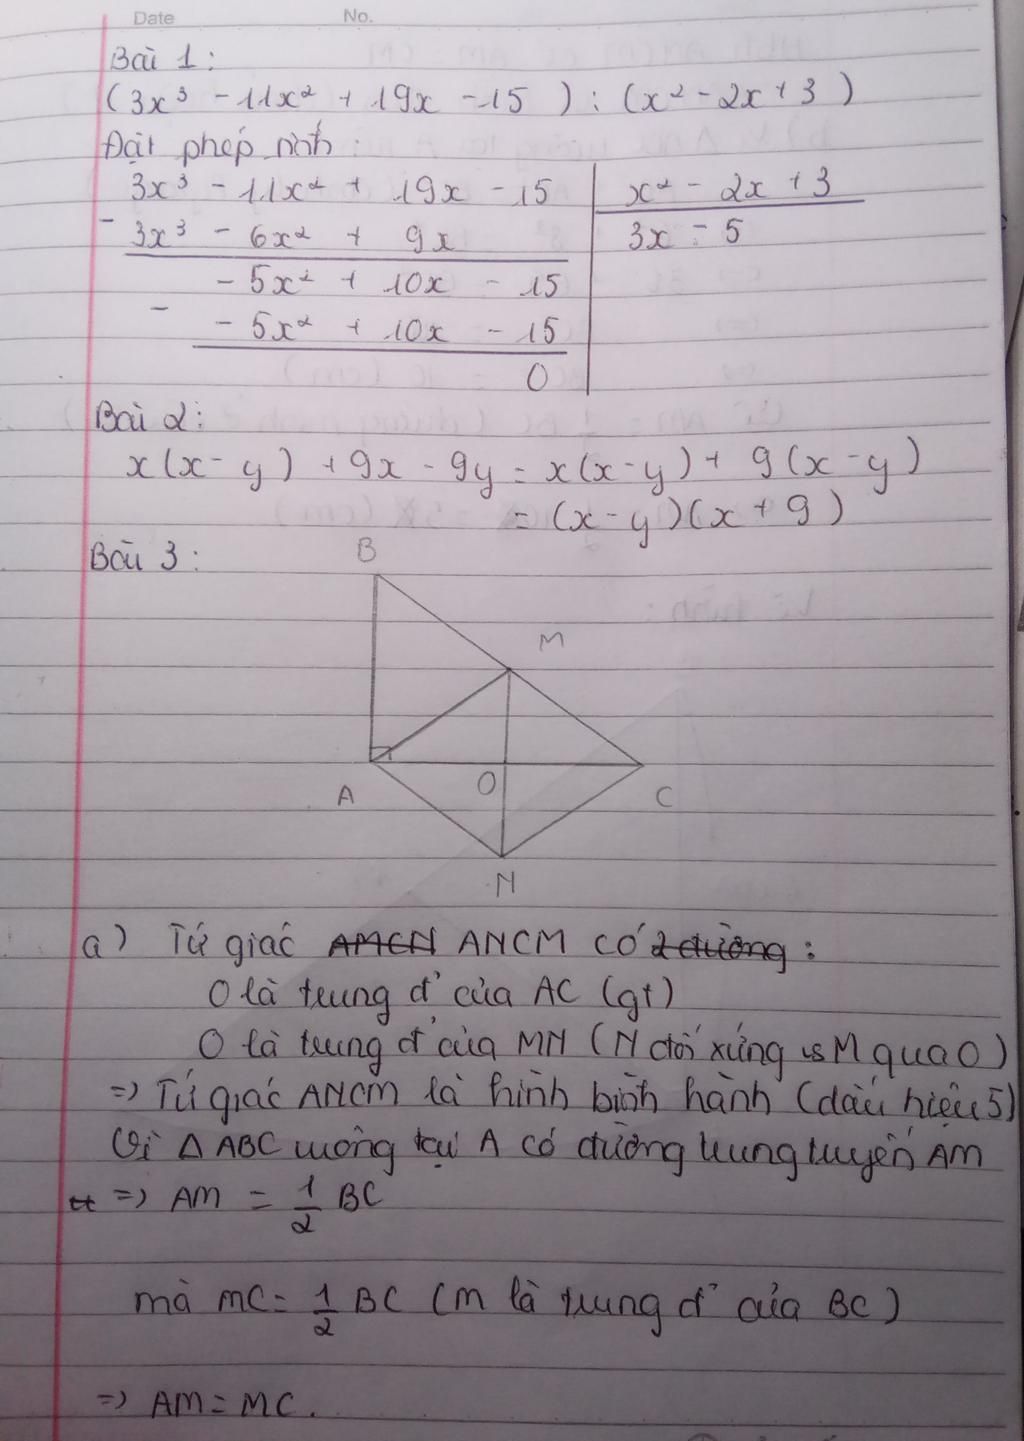 Date No.
Bài 1:
(3x³ - 11x² + 19x - 15) : (x² - 2x + 3)
Đặt phép tính:
3x³ - 11x² + 19x - 15 | x² - 2x + 3
- 3x³ - 6x² + 9x | 3x - 5
- 5x² + 10x - 15
- - 5x² + 10x - 15
0
Bài 2:
x(x - y) + 9x - 9y = x(x - y) + 9(x - y)
= (x - y)(x + 9)
Bài 3:
B
M
A O C
N
a) Tứ giác AMCN ANCM có 2 đường:
O là trung đ' của AC (gt)
O là trung đ' của MN (N đối xứng vs M qua O)
=> Tứ giác ANCM là hình bình hành (dấu hiệu 5)
Vì △ ABC vuông tại A có đường trung tuyến AM
=> AM = 1/2 BC
mà MC = 1/2 BC (M là trung đ' của BC)
=> AM = MC.